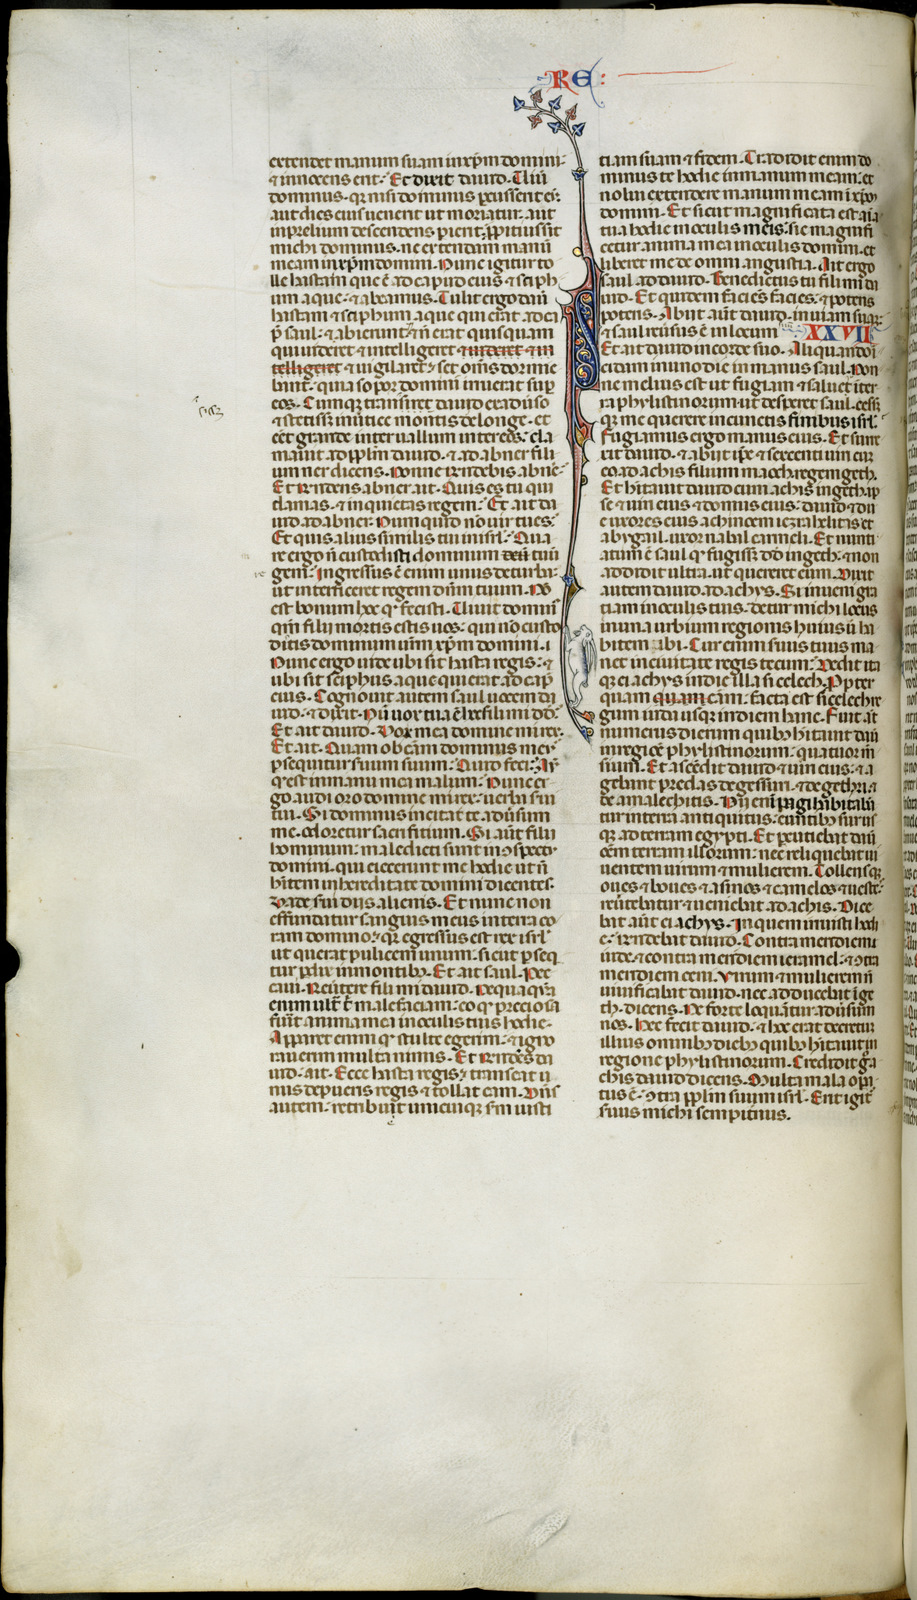 RE
extendet manum suam in xp̄m domini·
⁊ innocens erit· Et dixit dauid· Uiuit
dominus· qr nisi dominus ꝑcusserit eū·
aut dies eius uenerit ut moriatur· aut
in prelium descendens pierit· ppitius sit
michi dominus· ne extendam manū
meam in xp̄m domini· Nunc igitur to
lle hastam que ē ad caput eius· ⁊ sciph
um aque· ⁊ abeamus· Tulit ergo dauid
hastam ⁊ sciphum aque qui erat ad ca
p̄ saul· ⁊ abierunt· ⁊ n̄ erat quisquam
qui uideret ⁊ intelligeret uideret ⁊ in
telligeret ⁊ uigilaret· set om̄s dormie
bant· quia sopor domini irruerat sup
eos· Cumq; transisset dauid ex aduerso
⁊ stetisset in uertice montis de longe· et
eēt grande interuallum inter eos· cla
mauit ad ppl̄m dauid· ⁊ ad abner fili
um ner dicens· Nonne r̄ndebis abner·
Et r̄ndens abner ait· Quis es tu qui
clamas· ⁊ inquietas regem· Et ait da
uid ad abner· Nunquid nō uir tu es·
Et quis alius similis tui in isrl̄· Qua
re ergo n̄ custodisti dominum deū tuū
gem· Ingressus ē enim unus de turba·
ut interficeret regem dn̄m tuum· Nō
est bonum hoc qd fecisti· Uiuit domin
qm̄ filii mortis estis uos· qui nō custo
distis dominum ur̄m xp̄m domini·
Nunc ergo uide ubi sit hasta regis· ⁊
ubi sit sciphus aque qui erat ad cap
eius· Cognouit autem saul uocem da
uid· ⁊ dixit· Nū uox tua ē hec fili mi dd·
Et ait dauid· Vox mea domine mi rex·
Et ait· Quam ob cām dominus meus
ꝑsequitur seruum suum· Quid feci· Aut
qd est in manu mea malum· Nunc er
go audi oro domine mi rex· uerba serui
tui· Si dominus incitat te aduersum
me· odoretur sacrificium· Si aūt filii
hominum· maledicti sunt in ɔspectu
domini· qui eiecerunt me hodie ut n̄
hitem in hereditate domini dicentes·
Vade serui diis alienis· Et nunc non
effundatur sanguis meus in terra co
ram domino· qr egressus est rex isrl̄
ut querat pulicem unum· sicut ꝑseq
tur ꝑdix in montib;· Et ait saul· Pec
caui· Reuertere fili mi dauid· nequaquā
enim ult t̄ malefaciam· eo qd preciosa
fuit anima mea in oculis tuis hodie·
Apparet enim qd stulte egerim· ⁊ igno
rauerim multa nimis· Et r̄ndens da
uid· ait· Ecce hasta regis· transeat u
nus de pueris regis ⁊ tollat eam· Dn̄s
autem· retribuit unicuiq; scdm iusti
tiam suam ⁊ fidem· Tradidit enim do
minus te hodie in manum meam· et
nolui extendere manum meam ī xpm
domini· Et sicut magnificata est aīa
tua hodie in oculis meis· sic magnifi
cetur anima mea in oculis domini· et
liberet me de omni angustia· Ait ergo
saul ad dauid· Benedictus tu fili mi da
uid· Et quidem facies facies· ⁊ potens
potens· Abiit aūt dauid· in uiam suam·
⁊ saul reuersus ē in locum XXVII
Et ait dauid in corde suo· Aliquando ī
cidam uno die in manus saul· Non
ne melius est ut fugiam ⁊ saluer ī ter
ra phylistinorum ut desperet saul· cesset
q; me querere in cunctis finibus isrl̄·
Fugiamus ergo manus eius· Et surre
xit dauid· ⁊ abiit ipe ⁊ sexcenti uiri cum
eo ad achis filium maoch regem geth·
Et hitauit dauid cum achis in geth ip
se ⁊ uiri eius ⁊ domus eius· dauid ⁊ du
e uxores eius achinoem iezrahelitis et
abygail uxor nabal carmeli· Et nunti
atum ē saul qd fugisset dd in geth· ⁊ non
addidit ultra· ut quereret eum· Dixit
autem dauid ad achys· Si inueni gra
tiam in oculis tuis· detur michi locus
in una urbium regionis huius ut ha
bitem ibi· Cur enim seruus tuus ma
net in ciuitate regis tecum· Dedit ita
q; ei achys in die illa sicelech· Propter
quam quam cām· facta est sicelech re
gum iuda usq; in diem hanc· Fuit aūt
numerus dierum quib; hitauit dauid
in regiōe phylistinorum· quatuor m̄
sium· Et ascēdit dauid ⁊ uiri eius· ⁊ a
gebant predas de gessuri· ⁊ de gethri· ⁊
de amalechitis· Hii enī pagi habitabā
tur in terra antiquitus· euntib; surus
q; ad terram egypti· Et percutiebat dauid
oēm terram illorum· nec relinquebat ui
uentem uirum ⁊ mulierem· Tollensq;
oues ⁊ boues ⁊ asinos ⁊ camelos ⁊ uestes·
reuertebatur ⁊ ueniebat ad achis· Dice
bat aūt ei achys· In quem irruisti hodi
e· r̄ndebat dauid· Contra meridiem
iude· ⁊ contra meridiem ieramel· ⁊ ɔtra
meridiem ceni· Virum ⁊ mulierem n̄
uiuificabat dauid· nec adducebat ī ge
th· dicens· Ne forte loquātur aduersum
nos· Hec fecit dauid· ⁊ hoc erat decretum
illius omnib; dieb; quib; hitauit in
regione phylistinorum· Credidit ergo a
chis dauid dicens· Multa mala opa
tus ē· ɔtra ppl̄m suum isrl̄· Erit igit̄
seruus michi sempiternus.